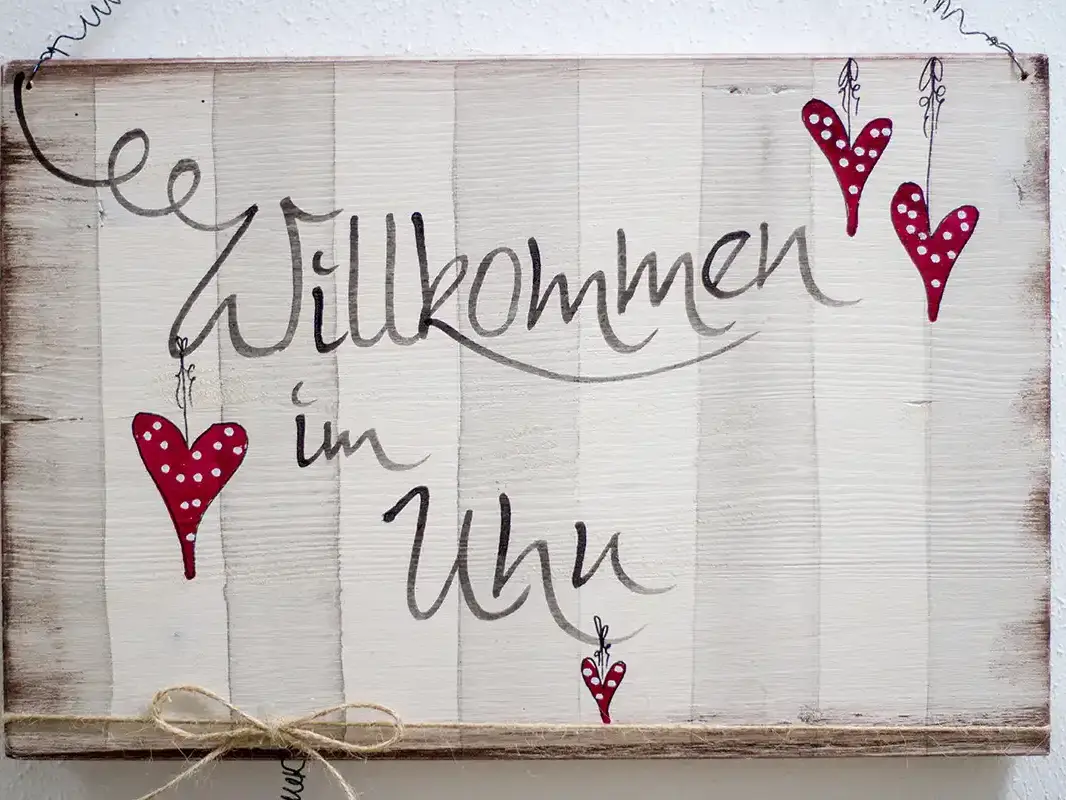 Willkommen
im
Uhu